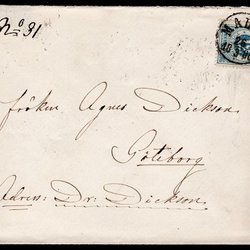 No 31
MAL
fröken Agnes Dickson.
Göteborg
Adress: Dr: Dickson.